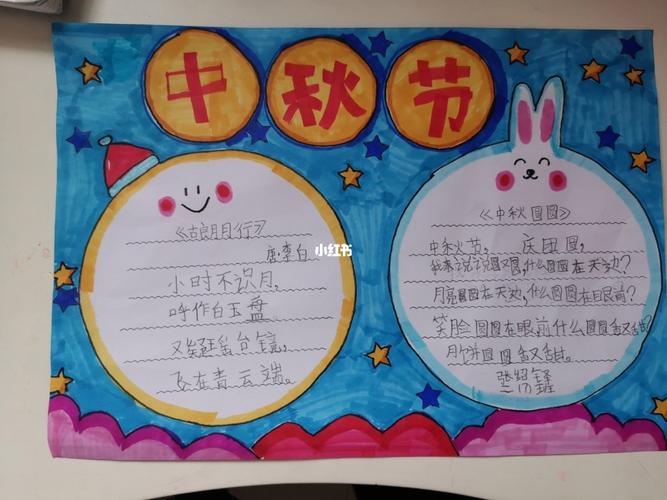 中秋节
《古朗月行》
唐·李白
小时不识月,
呼作白玉盘
又疑瑶台镜,
飞在青云端。
小红书
《中秋圆圆》
中秋火节, 庆团圆,
我来说说圆又圆,什么圆圆在天边?
月亮圆圆在天边,什么圆圆在眼前?
笑脸圆圆在眼前什么圆圆香又甜?
月饼圆圆香又甜。